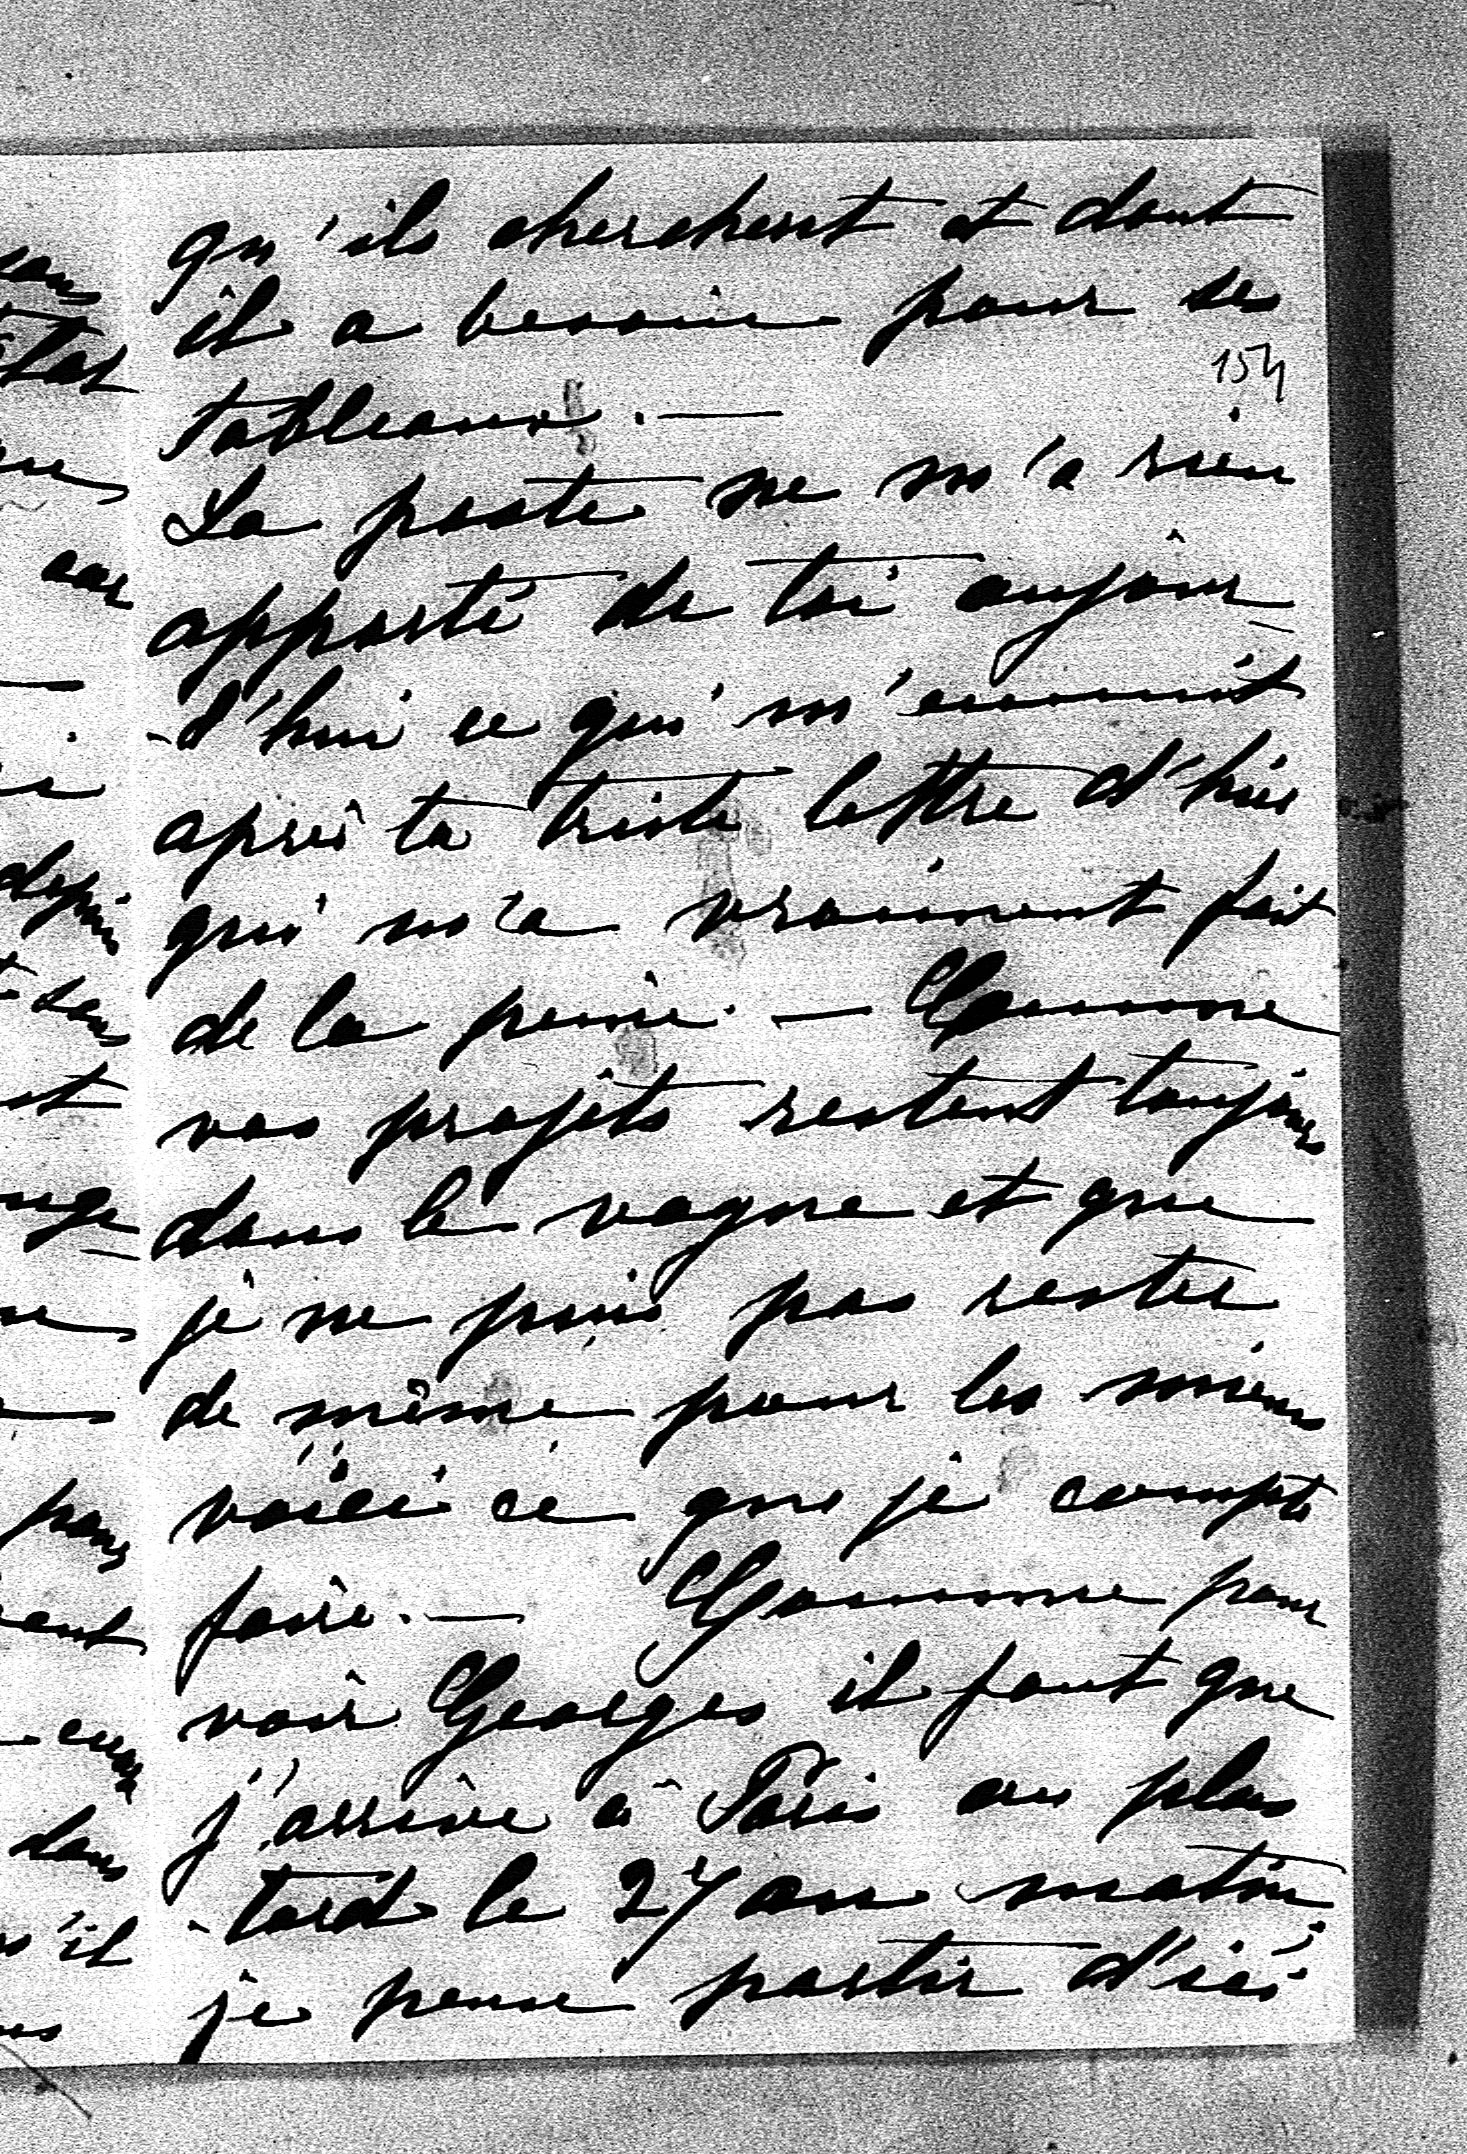 qu'ils cherchent et dont
il a besoin pour ses
154
tableaux. —
La poste ne m'a rien
apporté de toi aujour
-d'hui ce qui m'ennuit
après ta triste lettre d'hier
qui m'a vraiment fait
de la peine. — Comme
vos projets restent toujours
dans le vague et que
je ne puis pas rester
de même pour les miens
voici ce que je compte
faire. — Comme pour
voir Georges il faut que
j'arrive à Paris au plus
tard le 27 au matin
je pense partir d'ici